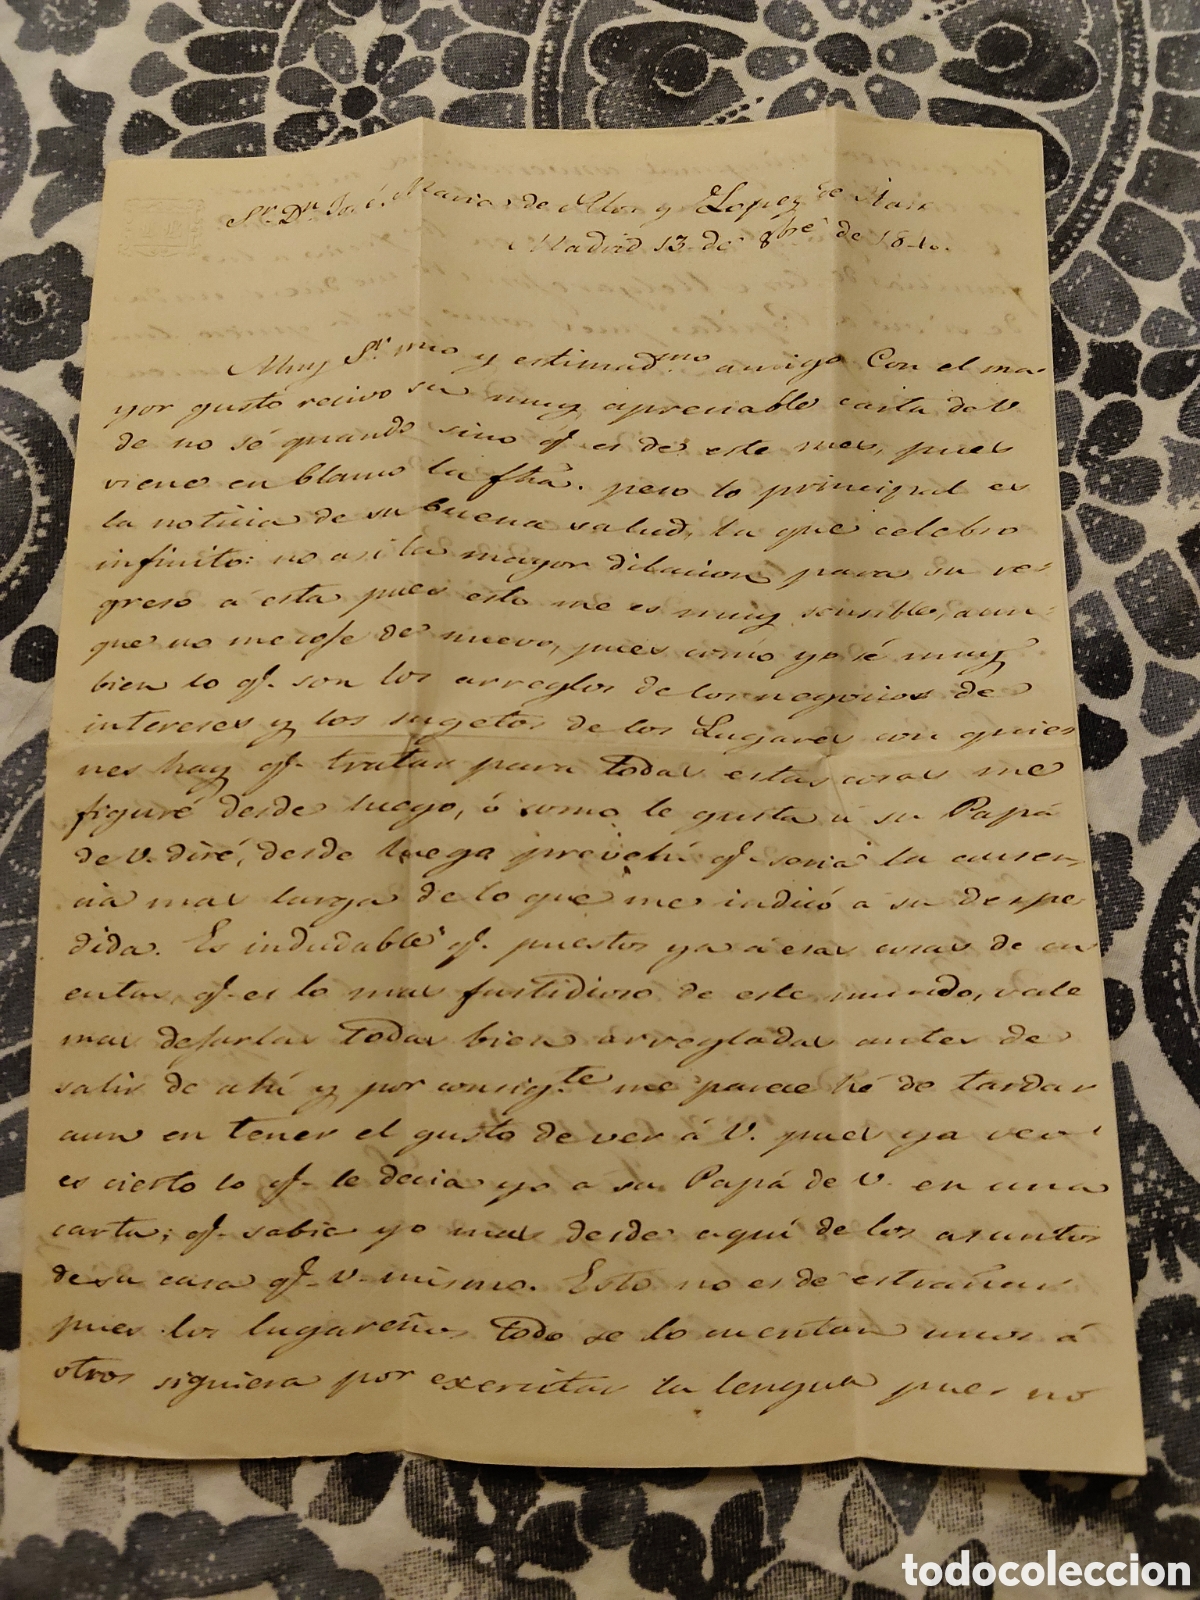 Sr. Dn. José Maria de Alos y Lopez de
Madrid 13 de 8bre de 184
Muy Sr. mio y estimadmo. amigo Con el ma-
yor gusto recivo su muy apreciable carta de V
de no sé quando sino q. es de este mes, pues
viene en blanco la fha. pero lo principal es
la noticia de su buena salud, la que celebro
infinito: no asi la mayor dilacion para su re-
greso á esta pues esto me es muy sensible, aun-
que no me coje de nuevo, pues como yo sé muy
bien lo q. son los arreglos de los negocios de
intereses y los sugetos de los Lugares con quie-
nes hay q. tratar para todas estas cosas me
figuré desde luego, ó como le gusta á su Papá
de V. diré, desde luego prevehí q. seria la ausen-
cia mas larga de lo que me indicó a su despe-
dida. Es indudable q. puestos ya á esas cosas de cu
entas, q. es lo mas fastidioso de este mundo, vale
mas dejarlas todas bien arregladas antes de
salir de ahí y por consigte. me parece hé de tardar
aun en tener el gusto de ver á V. pues ya ve
es cierto lo q. le decia yo a su Papá de V. en una
carta; q. sabia yo mas desde aquí de los asuntos
de su casa q. V. mismo. Esto no es de estrañar
pues los lugareños todo se lo cuentan unos á
otros siquiera por exercitar la lengua pues no
todocoleccion